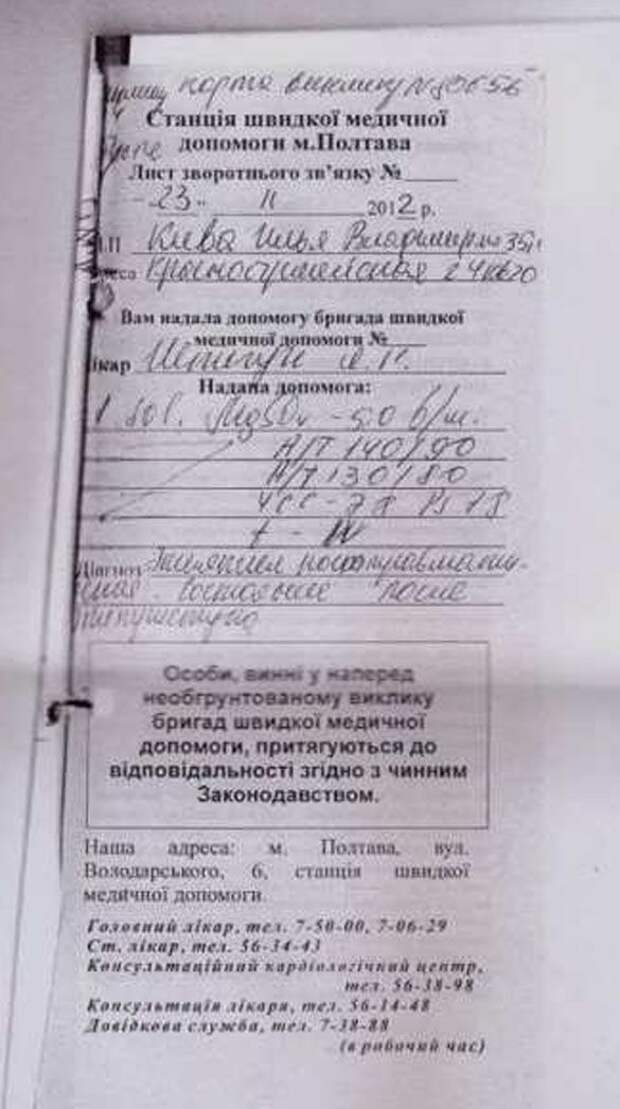 карта виклику №
Станція швидкої медичної
допомоги м.Полтава
Лист зворотнього зв'язку №
23 11 2012 р.
Кива Илья Владимир 35
Адреса Красноармейская 24 кв 20
Вам надала допомогу бригада швидкої
медичної допомоги №
Лікар
Надана допомога:
Sol. MgSO4 - 5.0 в/м.
А/Т 140/90
А/Т 130/80
ЧСС - 78 Ps 78
t - N
Діагноз
состояние после
Особи, винні у наперед
необгрунтованому виклику
бригад швидкої медичної
допомоги, притягуються до
відповідальності згідно з чинним
Законодавством.
Наша адреса: м. Полтава, вул.
Володарського, 6, станція швидкої
медичної допомоги.
Головний лікар, тел. 7-50-00, 7-06-29
Ст. лікар, тел. 56-34-43
Консультаційний кардіологічний центр,
тел. 56-38-98
Консультація лікаря, тел. 56-14-48
Довідкова служба, тел. 7-38-88
(в робочий час)